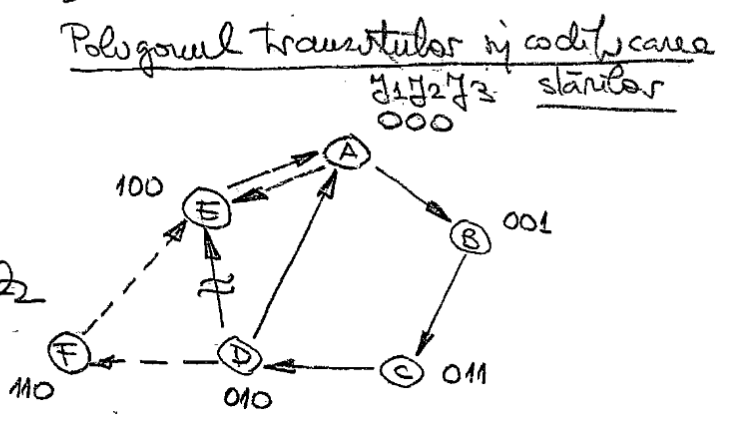 Poligonul tranzitiilor și codificarea
stărilor
y1y2y3
000
A
100
E
B
001
F
D
C
011
110
010